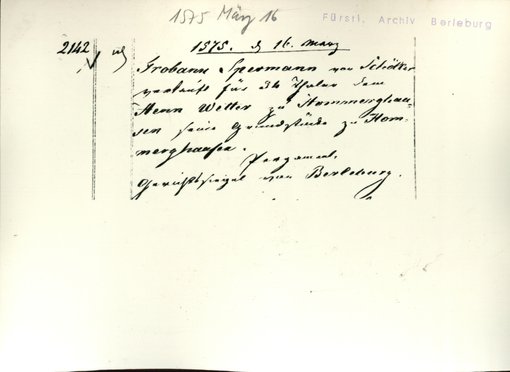 1575 März 16
Fürstl. Archiv Berleburg
2142
1575. d 16. März
Frobann Spermann von
verkauft für 34 Thaler dem
Henn Wetter zu Hemmerghau-
sen seine Grundstücke zu Hem-
merghausen.
Pergament.
Gerichtssiegel von Berleburg.